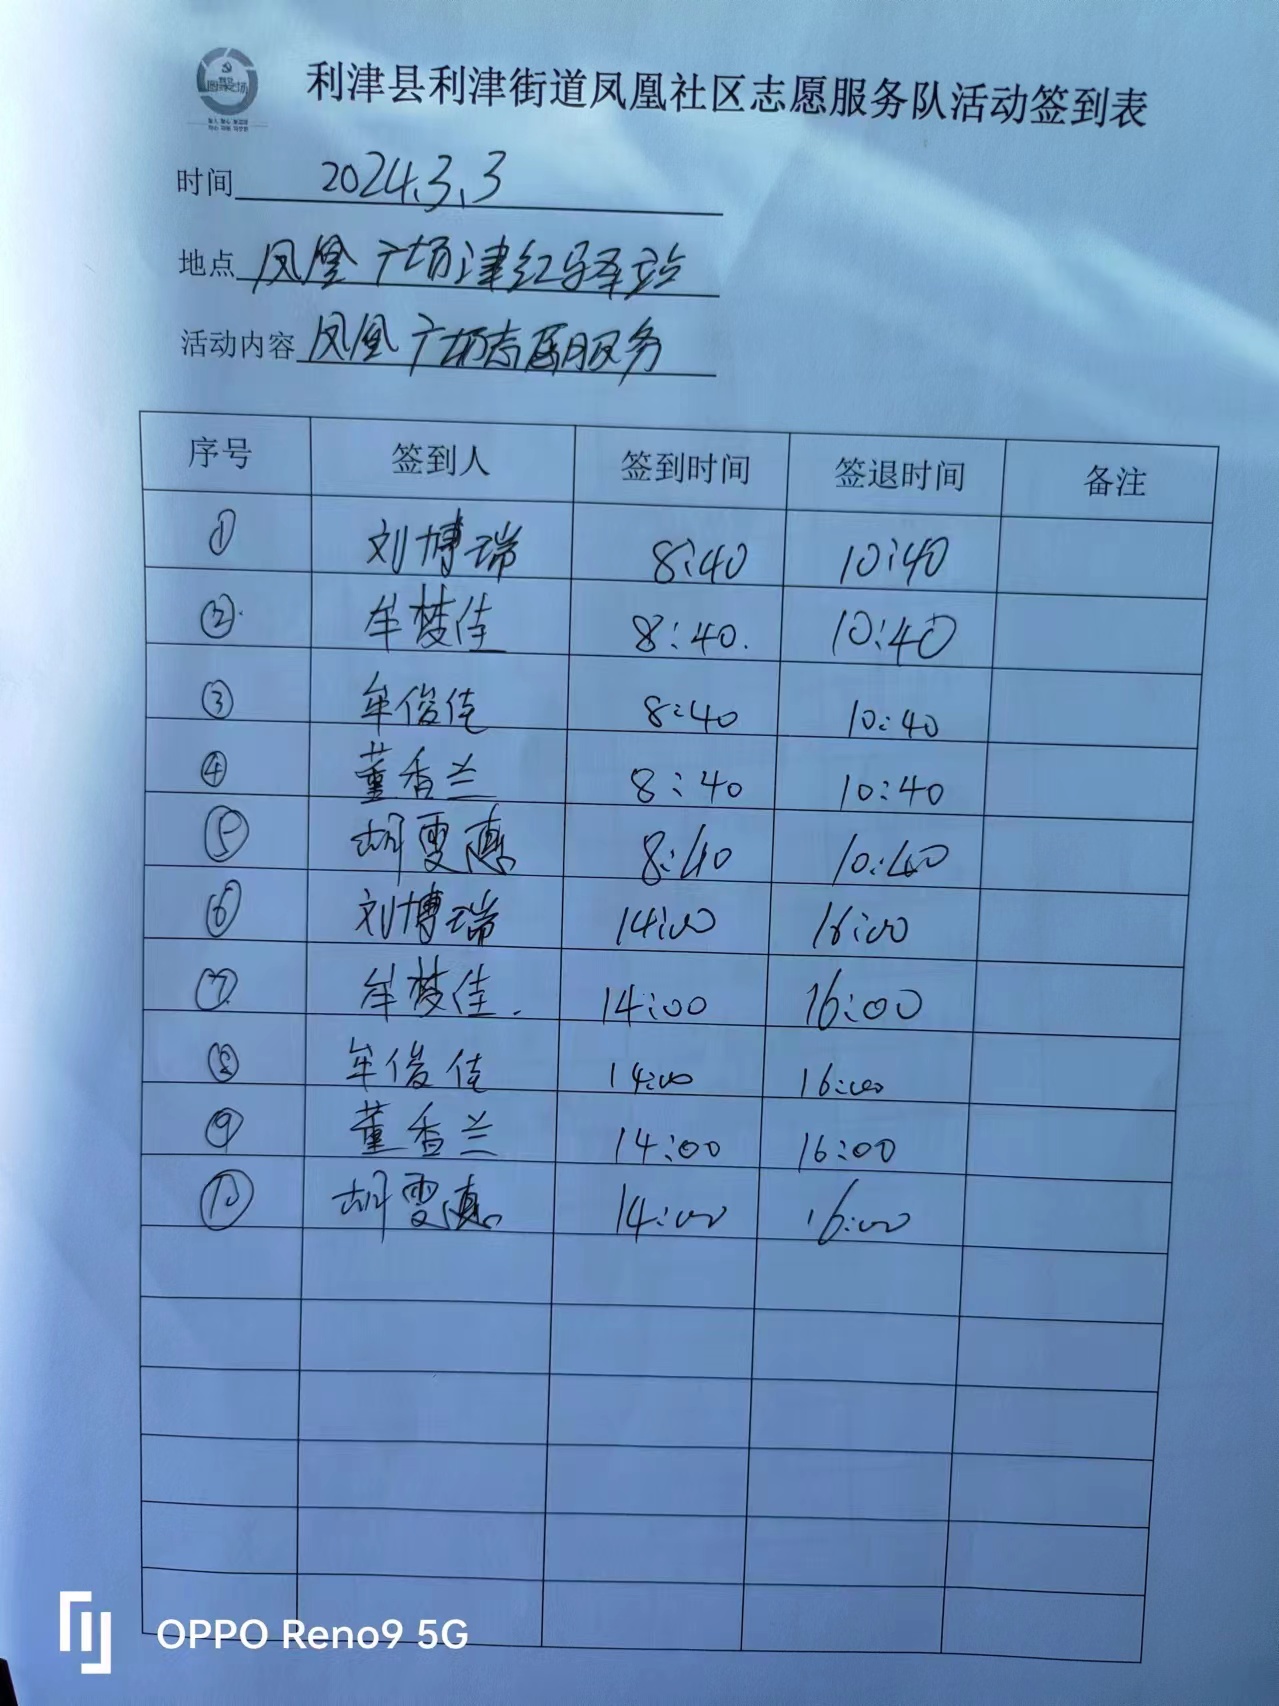 利津县利津街道凤凰社区志愿服务队活动签到表
时间 2024.3.3
地点 凤凰广场津红驿站
活动内容 凤凰广场志愿服务
序号 签到人 签到时间 签退时间 备注
① 刘博瑞 8:40 10:40
② 牟梦佳 8:40. 10:40
③ 牟俊佳 8:40 10:40
④ 董香兰 8:40 10:40
⑤ 胡雯惠 8:40 10:40
⑥ 刘博瑞 14:00 16:00
⑦ 牟梦佳. 14:00 16:00
⑧ 牟俊佳 14:00 16:00
⑨ 董香兰 14:00 16:00
⑩ 胡雯惠 14:00 16:00
OPPO Reno9 5G